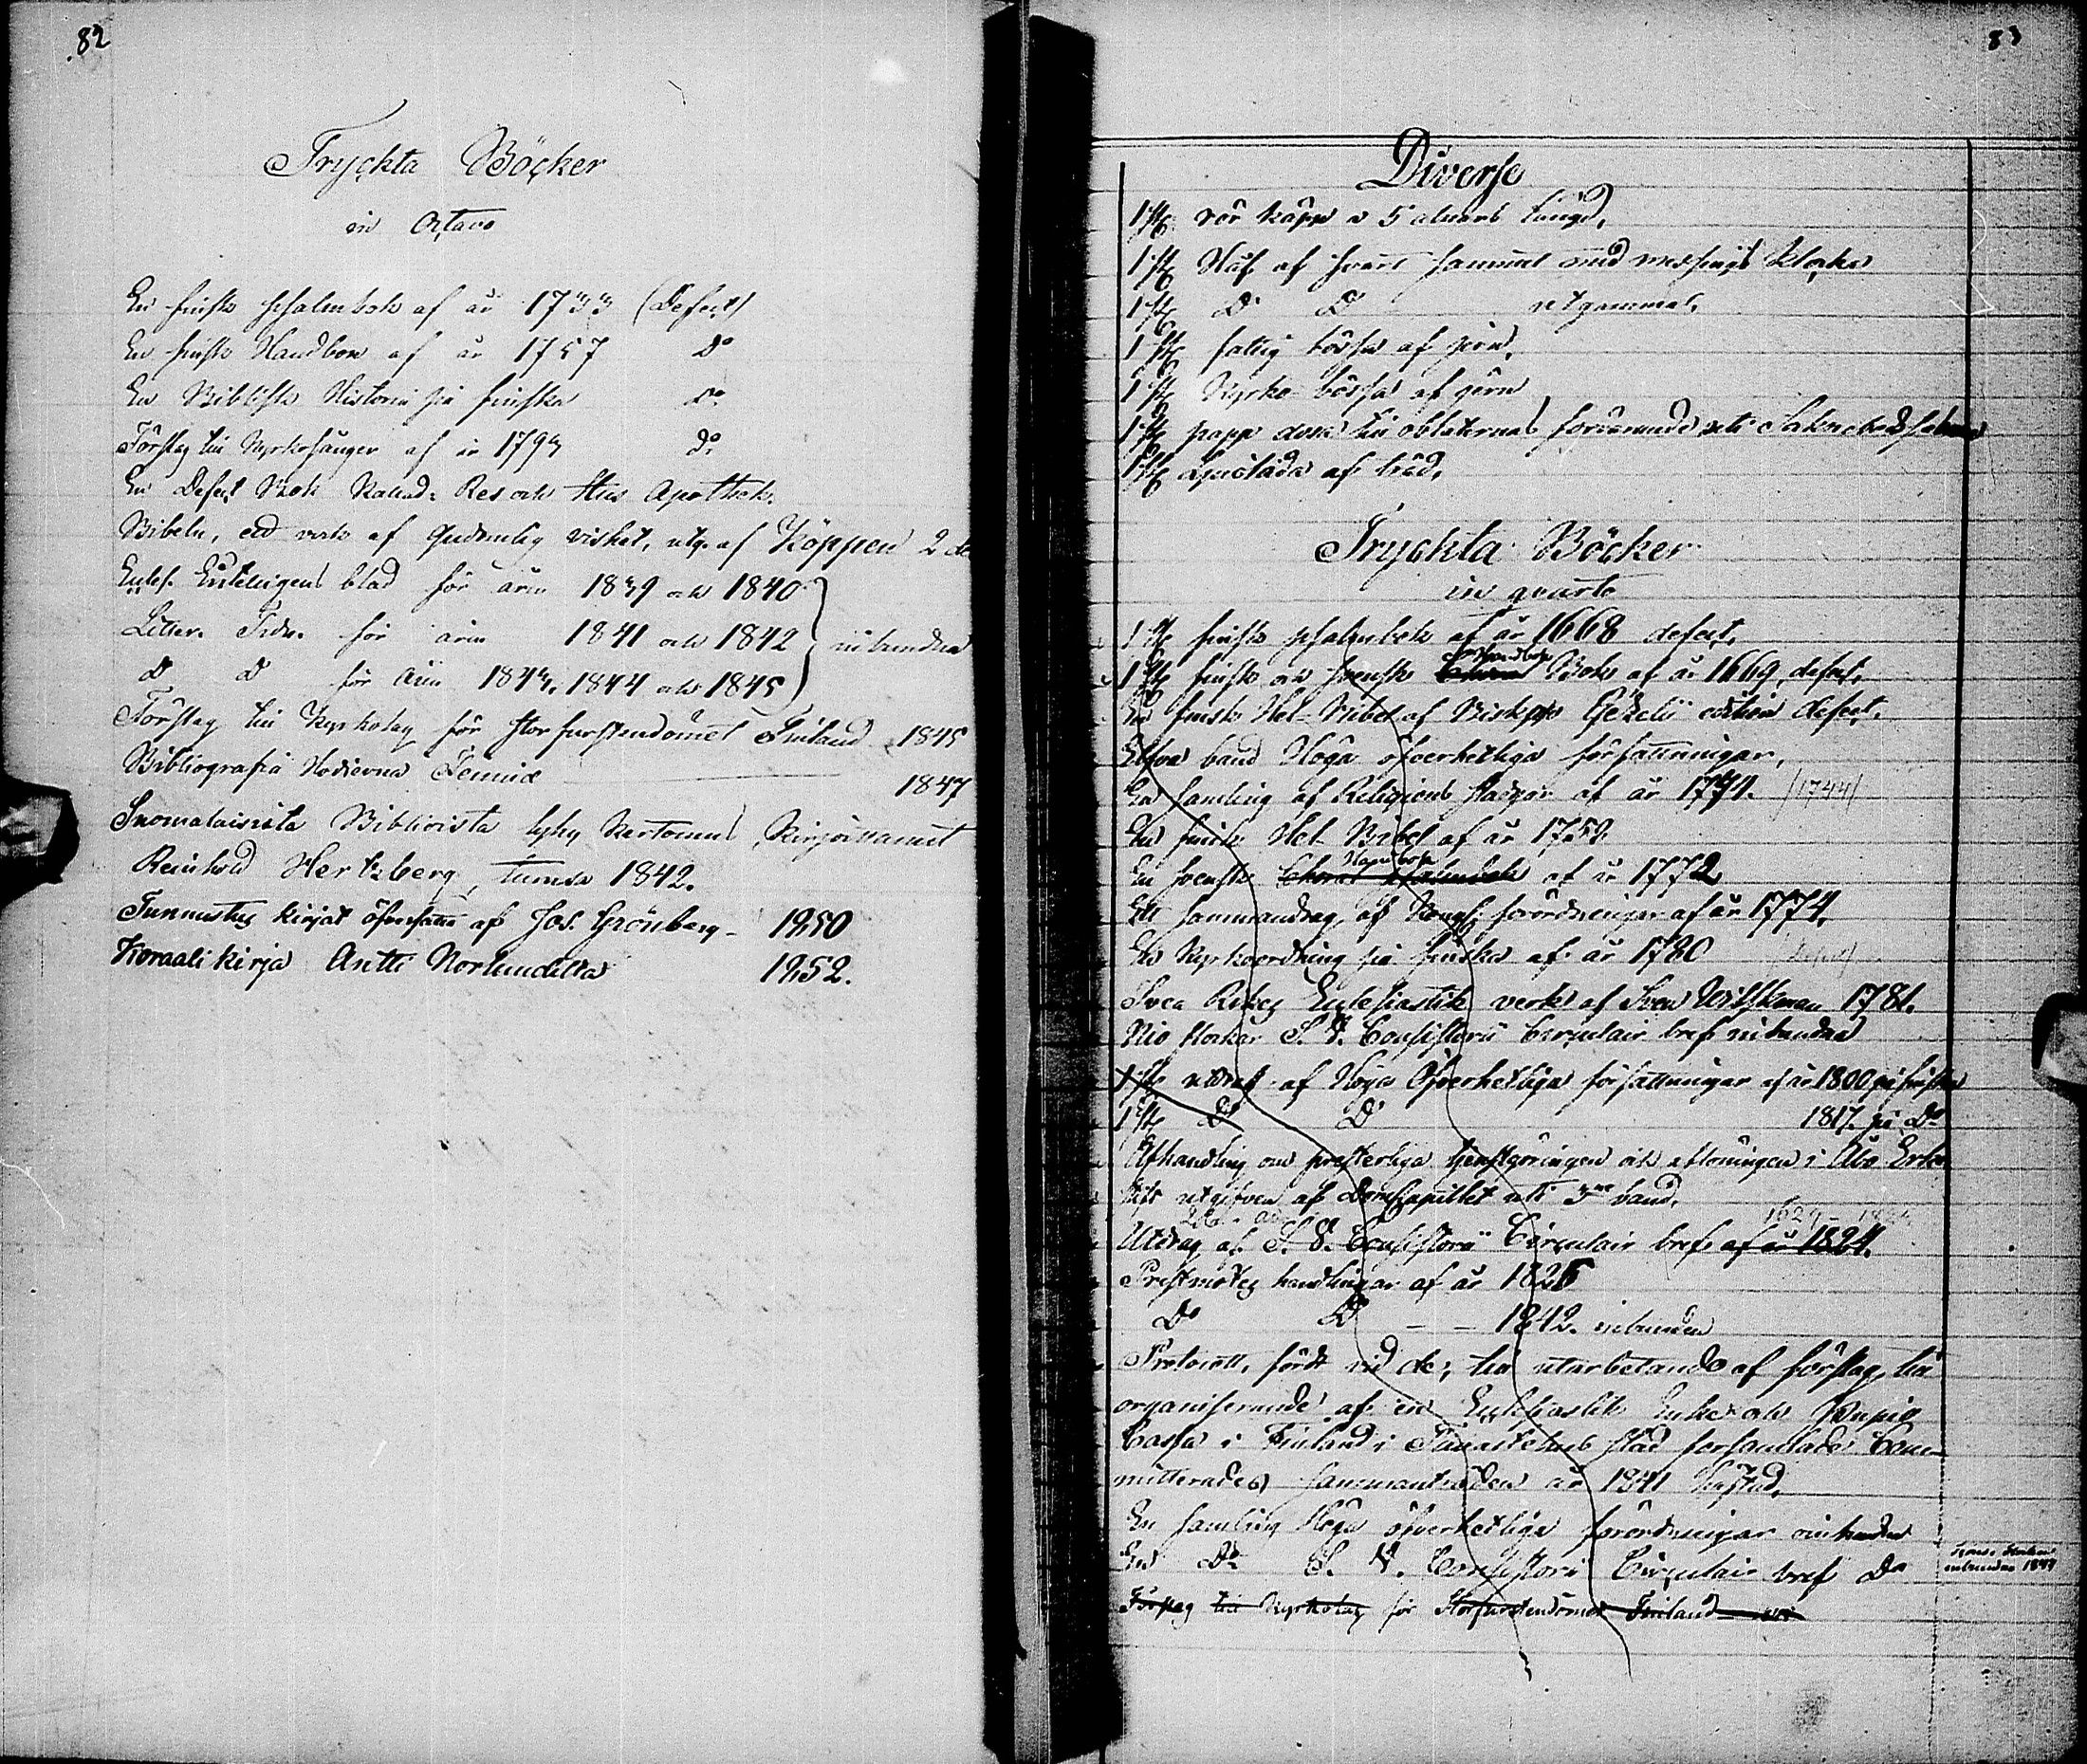 82
Tryckta Böcker
in Octavo
En finsk psalmbok af år 1733 (Defect)
En finsk Handbok af år 1757 Do
En Biblisk Historia på finska Do
Förslag till Kyrkosånger af år 1793 do
En Defect Bok Kallad: Res och Hus Apothek.
Bibeln, ett verk af Gudomlig vishet, utg. af Köppen 2 de
Eccles. Intelligens blad för åren 1839 och 1840
Litter. Tidn. för åren 1841 och 1842 inbundna
D D för åren 1843, 1844 och 1845
Förslag till Kyrkolag för Storfurstendömet Finland 1845
Bibliografia Hodierna Fennia 1847
Suomalaisista Biblioista lyhy kertomus, kirjoittanut
Reinhold Hertzberg, Turussa 1842.
Tunnustus kirjat öfversatta af Jos. Grönberg - 1850
Koraali kirja Antti Norlundilta 1852.
83
Diverse
1 st rör käpp a 5 alnars längd.
1 st Håf af svart sammet med messings klocka
1 st D D utgammal.
1 st fattig bössa af jern.
1 st Kyrko-bössa af jern
1 st papp dosa till oblaterna förvarande uti
1 st af träd.
Tryckta Böcker
in quarto
1 st finsk psalmbok af år 1668 defect.
1 st finsk och svensk Handbok Bok af år 1669, defect.
En finsk Hel-Bibel af Biskops Gezelii edition defect.
Elfva band Höga öfverhetliga författningar.
En samling af Religions stadgar af år 1744. /1744/
En finsk Hel-Bibel af år 1758
En svensk Choral psalmbok Handbok af år 1772
Ett sammandrag af Kongl. förordningar af år 1774.
En Kyrkoordning på finska af år 1780
Svea Rikes Ecclesiastik verk af Sven Wilskman 1781.
Nio Stockar S. V. Consistorii Circulair bref inbundna
1 st utdrag af Höga Öfverhetliga författningar af år 1800 på finska
1 st D D 1817. på Do
Afhandling om presterliga tjenstgöringen och aflöningen i Åbo Erke
stift utgifven af Domcapitlet uti 3ne band.
1629 -
Utdrag af S. V. Consistorii Circulair bref af år 1824.
Prestmötes handlingar af år 1825
Do D - - 1842. inbunden
Protocoll, fördt vid de, till utarbetande af förslag till
organiserande af en Ecclesiastik Enke- och Pupill
Cassa i Finland i Tavastehus stad församlade Com-
mitterades sammanträden år 1841 häftad.
En samling Höga öfverhetliga förordningar oinbunden
En Do S. V. Consistorii Circulair bref Do
inbundna 1844
Förslag till Kyrkolag för Storfurstendömet Finland